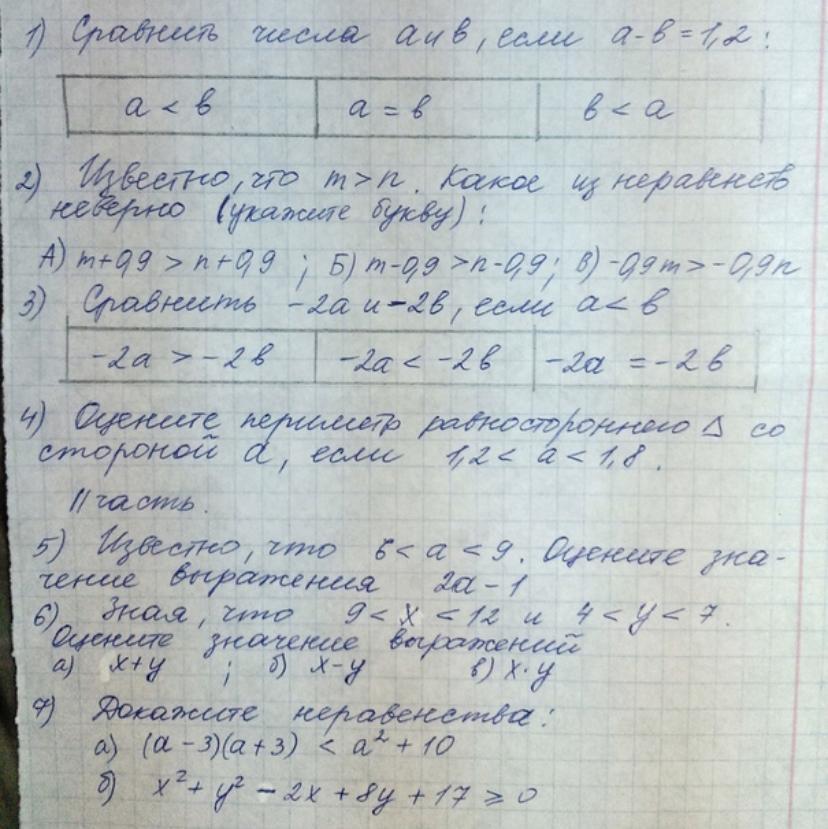 1) Сравнить числа а и в, если а-в = 1,2 :
а < в   а = в   в < а
2) Известно, что m > n. Какое из неравенств
неверно (укажите букву) :
А) m+0,9 > n+0,9 ; Б) m-0,9 > n-0,9 ; В) -0,9m > -0,9n
3) Сравнить -2а и -2в, если а < в
-2а > -2в   -2а < -2в   -2а = -2в
4) Оцените периметр равностороннего Δ со
стороной а, если 1,2 < а < 1,8.
II часть.
5) Известно, что 6 < а < 9. Оцените зна-
чение выражения 2а - 1
6) Зная, что 9 < х < 12 и 4 < у < 7.
Оцените значение выражений
а) х+у ; б) х-у   в) х·у
7) Докажите неравенства:
а) (а - 3)(а + 3) < а² + 10
б) х² + у² - 2х + 8у + 17 ≥ 0